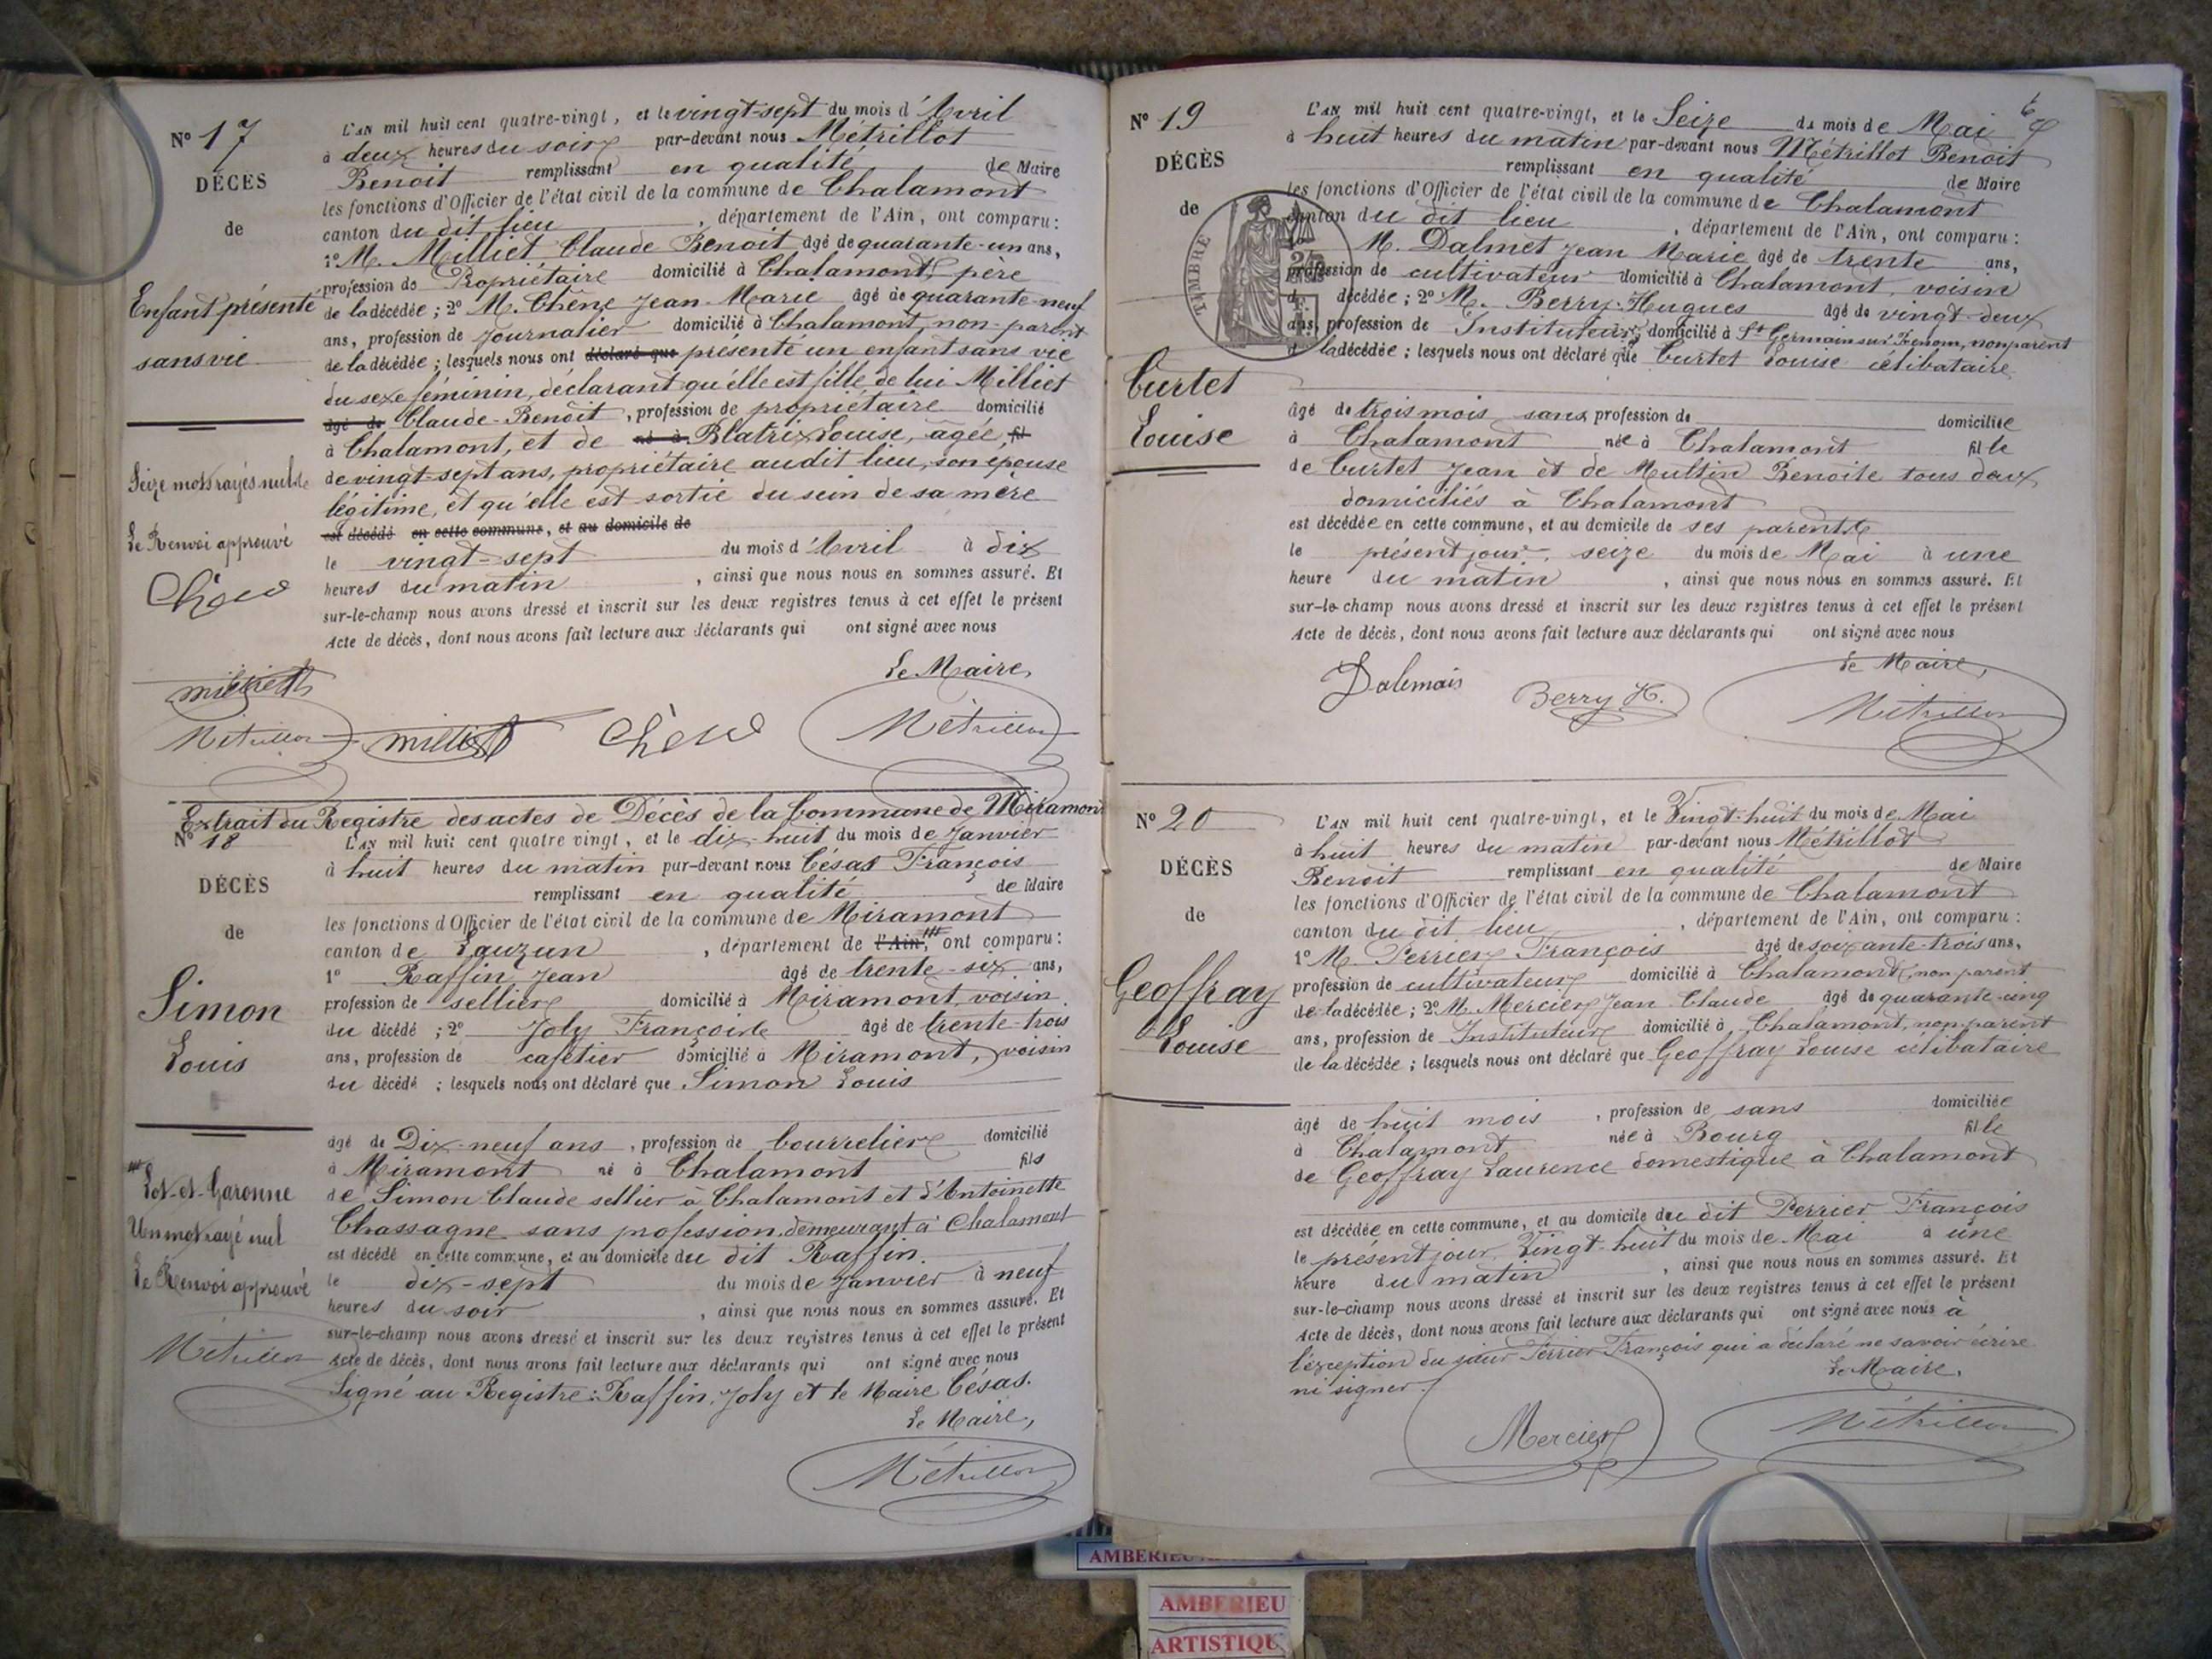 N° 17
DÉCÈS
de
Enfant présenté
sans vie
Seize mots rayés nuls
Le Renvoi approuvé
Chêne
Milliet
Métrillot
L'AN mil huit cent quatre-vingt, et le vingt-sept du mois d'Avril
à deux heures du soir par-devant nous Métrillot
Benoit remplissant en qualité de Maire
les fonctions d'Officier de l'état civil de la commune de Chalamont
canton du dit lieu, département de l'Ain, ont comparu :
1° M. Milliet Claude Benoit âgé de quarante-un ans,
profession de Propriétaire domicilié à Chalamont, père
de la décédée ; 2° M. Chêne Jean-Marie âgé de quarante-neuf
ans, profession de Journalier domicilié à Chalamont, non-parent
de la décédée ; lesquels nous ont déclaré que présenté un enfant sans vie
du sexe féminin, déclarant qu'elle est fille de lui Milliet
âgé de Claude-Benoit, profession de propriétaire domicilié
à Chalamont, et de né à Blatrix Louise, âgée fil
de vingt-sept ans, propriétaire audit lieu, son épouse
légitime, et qu'elle est sortie du sein de sa mère
est décédé en cette commune, et au domicile de
le vingt-sept du mois d'Avril à dix
heures du matin, ainsi que nous nous en sommes assuré. Et
sur-le-champ nous avons dressé et inscrit sur les deux registres tenus à cet effet le présent
Acte de décès, dont nous avons fait lecture aux déclarants qui ont signé avec nous
Le Maire,
Milliet Chêne Métrillot
Extrait du Registre des actes de Décès de la Commune de Miramont
N° 18
DÉCÈS
de
Simon
Louis
Lot-et-Garonne
Un mot rayé nul
Le Renvoi approuvé
Métrillot
L'AN mil huit cent quatre vingt, et le dix-huit du mois de Janvier
à huit heures du matin par-devant nous Césas François
remplissant en qualité de Maire
les fonctions d'Officier de l'état civil de la commune de Miramont
canton de Lauzun, département de l'Ain, ont comparu :
1° Raffin Jean âgé de trente-six ans,
profession de sellier domicilié à Miramont, voisin
du décédé ; 2° Joly François âgé de trente-trois
ans, profession de cafetier domicilié à Miramont, voisin
du décédé ; lesquels nous ont déclaré que Simon Louis
âgé de Dix-neuf ans, profession de bourrelier domicilié
à Miramont né à Chalamont fils
de Simon Claude sellier à Chalamont et d'Antoinette
Chassagne sans profession demeurant à Chalamont
est décédé en cette commune, et au domicile du dit Raffin.
le dix-sept du mois de Janvier à neuf
heures du soir, ainsi que nous nous en sommes assuré. Et
sur-le-champ nous avons dressé et inscrit sur les deux registres tenus à cet effet le présent
Acte de décès, dont nous avons fait lecture aux déclarants qui ont signé avec nous
Signé au Registre : Raffin, Joly et le Maire Césas.
Le Maire,
Métrillot
N° 19
DÉCÈS
de
TIMBRE
Curtet
Louise
L'AN mil huit cent quatre-vingt, et le Seize du mois de Mai
à huit heures du matin par-devant nous Métrillot Benoit
remplissant en qualité de Maire
les fonctions d'Officier de l'état civil de la commune de Chalamont
canton du dit lieu, département de l'Ain, ont comparu :
M. Dalmet Jean Marie âgé de trente ans,
profession de cultivateur domicilié à Chalamont, voisin
décédée ; 2° M. Berry Hugues âgé de vingt-deux
ans, profession de Instituteur, domicilié à St Germain sur Renom, non parent
la décédée ; lesquels nous ont déclaré que Curtet Louise célibataire
âgé de trois mois sans profession de domiciliée
à Chalamont née à Chalamont fille
de Curtet Jean et de Multin Benoite tous deux
domiciliés à Chalamont
est décédée en cette commune, et au domicile de ses parents
le présent jour, seize du mois de Mai à une
heure du matin, ainsi que nous nous en sommes assuré. Et
sur-le-champ nous avons dressé et inscrit sur les deux registres tenus à cet effet le présent
Acte de décès, dont nous avons fait lecture aux déclarants qui ont signé avec nous
Le Maire,
Dalmais Berry H. Métrillot
N° 20
DÉCÈS
de
Geoffray
Louise
L'AN mil huit cent quatre-vingt, et le Vingt-huit du mois de Mai
à huit heures du matin par-devant nous Métrillot
Benoit remplissant en qualité de Maire
les fonctions d'Officier de l'état civil de la commune de Chalamont
canton du dit lieu, département de l'Ain, ont comparu :
1° M. Perrier François âgé de soixante-trois ans,
profession de cultivateur domicilié à Chalamont, non parent
de la décédée ; 2° M. Mercier Jean Claude âgé de quarante-cinq
ans, profession de Instituteur domicilié à Chalamont, non-parent
de la décédée ; lesquels nous ont déclaré que Geoffray Louise célibataire
âgé de huit mois, profession de sans domiciliée
à Chalamont née à Bourg fille
de Geoffray Laurence domestique à Chalamont
est décédée en cette commune, et au domicile du dit Perrier François
le présent jour, Vingt-huit du mois de Mai à une
heure du matin, ainsi que nous nous en sommes assuré. Et
sur-le-champ nous avons dressé et inscrit sur les deux registres tenus à cet effet le présent
Acte de décès, dont nous avons fait lecture aux déclarants qui ont signé avec nous à
l'exception du sieur Perrier François qui a déclaré ne savoir écrire
ni signer. Le Maire,
Mercier Métrillot
AMBERIEU
AMBERIEU
ARTISTIQU